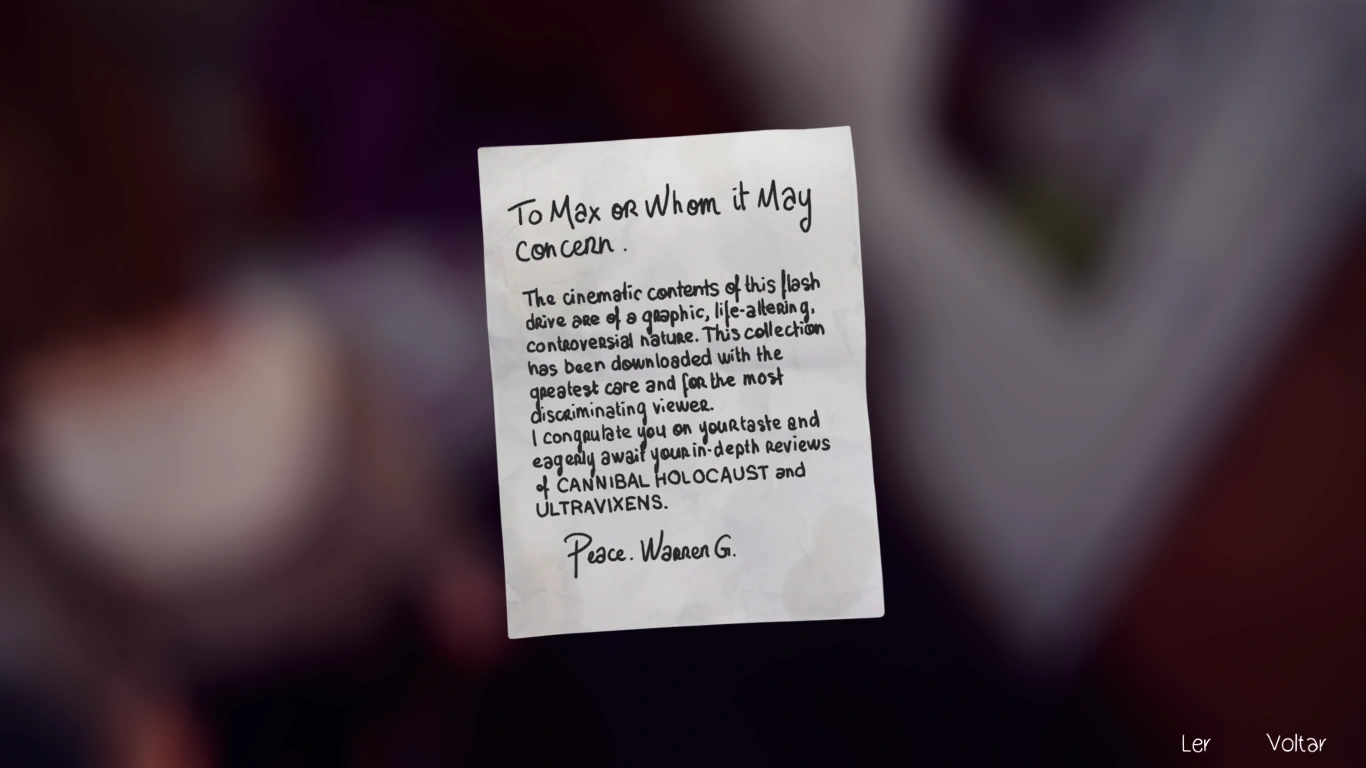 To Max or Whom it May
concern.
The cinematic contents of this flash
drive are of a graphic, life-altering,
controversial nature. This collection
has been downloaded with the
greatest care and for the most
discriminating viewer.
I congrulate you on your taste and
eagerly await your in-depth reviews
of CANNIBAL HOLOCAUST and
ULTRAVIXENS.
Peace. Warren G.
Ler Voltar